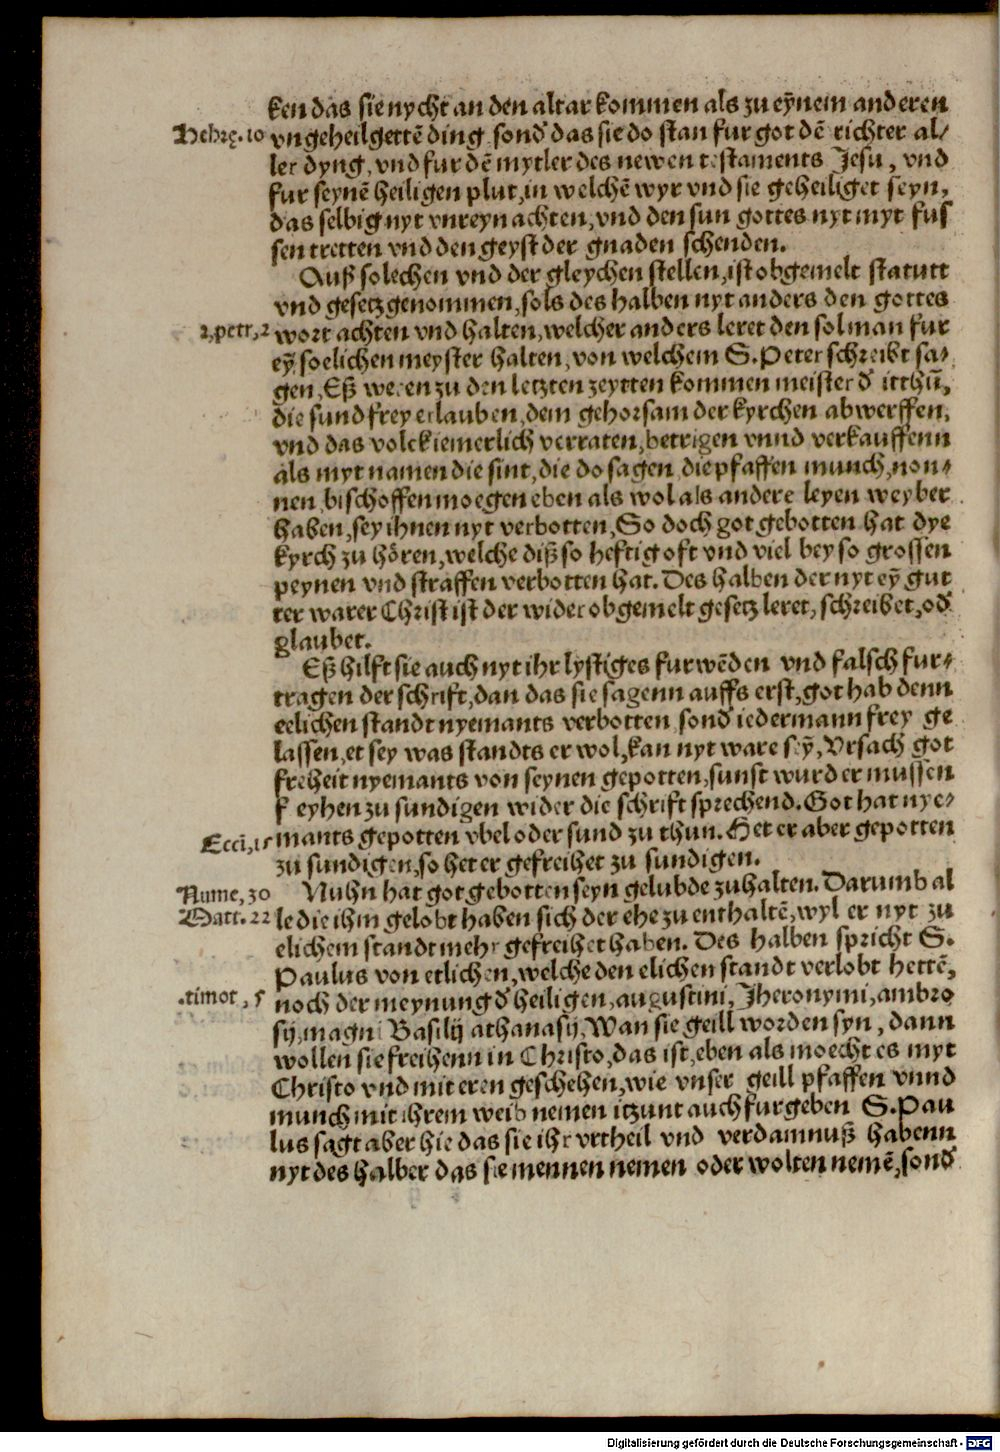 ken das sie nycht an den altar kommen als zu eyne͂m anderen
Hebrę. 10 vngeheilgette͂ ding sond᷑ das sie do stan fur got de͂ richter al/
ler dyng, vnd fur de͂ mytler des newen testaments Jesu, vnd
fur seyne͂ heiligen plut, in welche͂ wyr vnd sie geheiliget seyn,
das selbig nyt vnreyn achten, vnd den sun gottes nyt myt fus
sen tretten vnd den geyst der gnaden schenden.
Auß solechen vnd der gleychen stellen, ist obgemelt statutt
vnd gesetz genommen, sols des halben nyt anders den gottes
2, petr, 2 wort achten vnd halten, welcher anders leret den sol man fur
ey͂ soelichen meyster halten, von welchem S. Peter schreibt sa/
gen, Eß weren zu den letzten zeytten kommen meister d᷑ itthu͂,
die sund frey erlauben, dem gehorsam der kyrchen abwerffen,
vnd das volck iemerlich verraten, betrigen vnnd verkauffenn
als myt namen die sint, die do sagen die pfaffen munch, non/
nen bischoffen moegen eben als wol als andere leyen weyber
haben, sey ihnen nyt verbotten, So doch got gebotten hat dye
kyrch zu hören, welche diß so heftig oft vnd viel bey so grossen
peynen vnd straffen verbotten hat. Des halben der nyt ey͂ gut
ter warer Christ ist der wider obgemelt gesetz leret, schreibet, od᷑
glaubet.
Eß hilft sie auch nyt ihr lystiges furwe͂den vnd falsch fur/
tragen der schrift, dan das sie sagenn auffs erst, got hab denn
eelichen standt nyemants verbotten sond᷑ iedermann frey ge
lassen, et sey was standts er wol, kan nyt ware sey͂, Vrsach got
freheit nyemants von seynen gepotten, sunst wurd er mussen
f eyhen zu sundigen wider die schrift sprechend. Got hat nye/
Ecci͂, 15 mants gepotten vbel oder sund zu thun. Het er aber gepotten
zu sundigen, so het er gefreihet zu sundigen.
Nume, 30 Nuhn hat got gebotten seyn gelubde zuhalten. Darumb al
Matt. 22 le die ihm gelobt haben sich der ehe zu enthalte͂, wyl er nyt zu
elichem standt mehr gefreihet haben. Des halben spricht S.
Paulus von etlichen, welche den elichen standt verlobt hette͂,
.timot, 5 noch der meynung d᷑ heiligen, augustini, Jheronymi, ambro
sij, magni Basilij athanasij, Wan sie geill worden syn, dann
wollen sie freihenn in Christo, das ist, eben als moecht es myt
Christo vnd mit eren geschehen, wie vnser geill pfaffen vnnd
munch mit ihrem weib nemen itzunt auch furgeben S. Pau
lus sagt aber hie das sie ihr vrtheil vnd verdamnuß habenn
nyt des halber das sie mennen nemen oder wolten neme͂, sond᷑
Digitalisierung gefördert durch die Deutsche Forschungsgemeinschaft - DFG